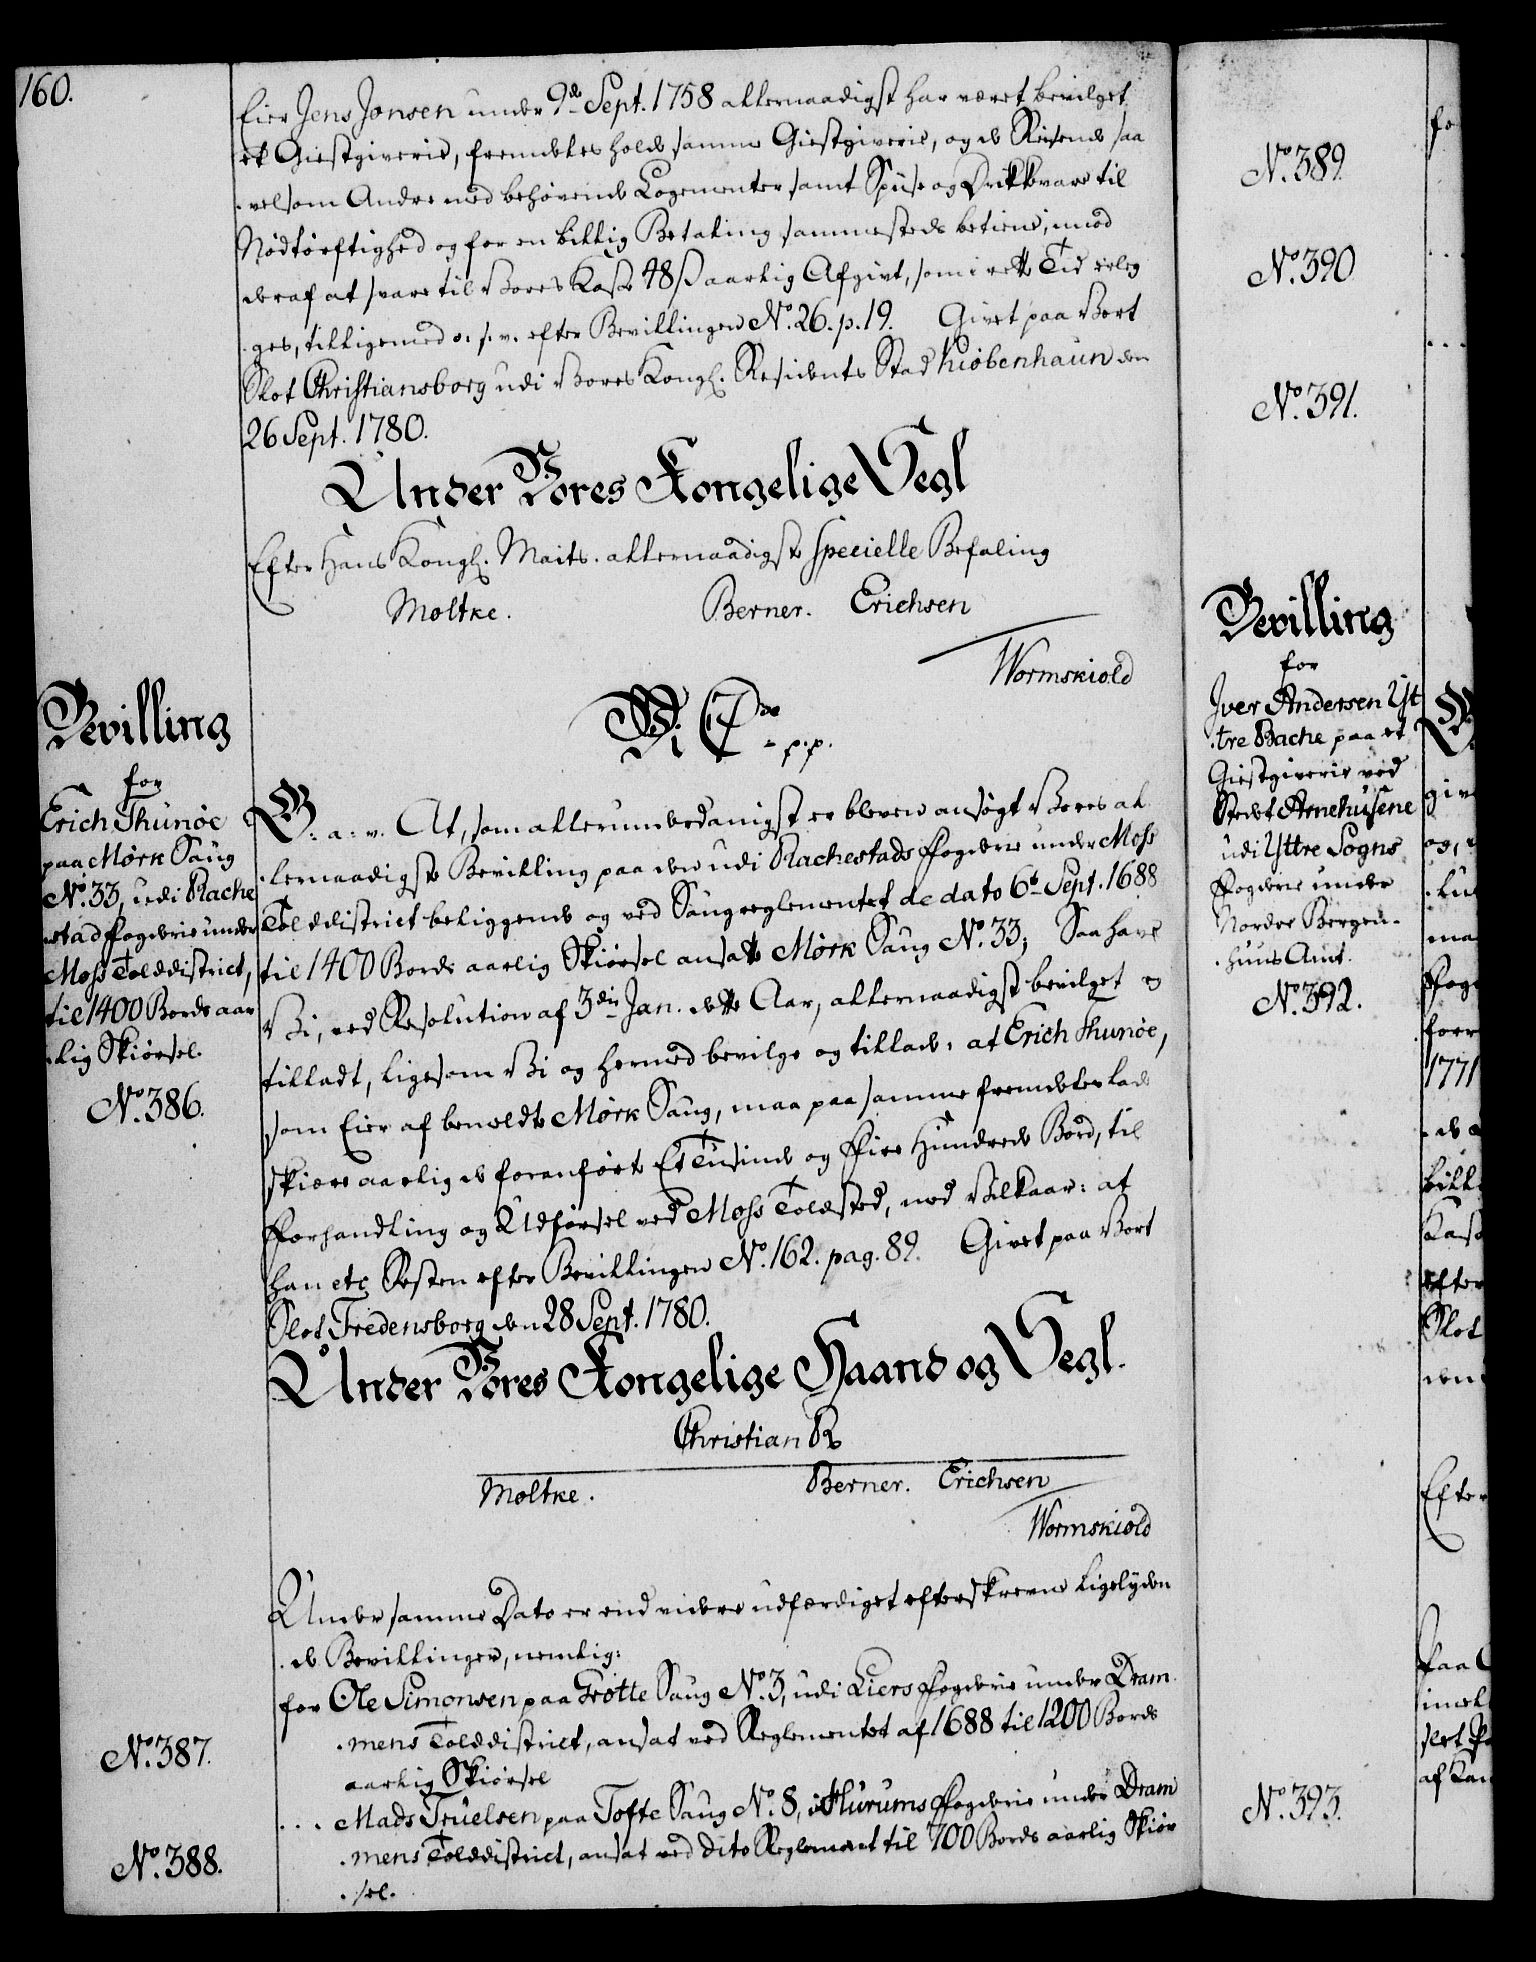 160.
Eier Jens Jonsen under 9de Sept. 1758 allernaadigst har været bevilget
et Giestgiverie, fremdeles holde samme Giestgiverie, og de Reisende saa
velsom Andre med behøvende Logementer samt Spiise og Drikkevare til
Nødtørftighed og for en billig Betaling sammesteds betiene, imod
deraf at svare til Vores Kasse 48 ß aarlig Afgivt, som i rette Tid erleg
ges, tilligemed o. s. v. efter Bevillingen No. 26. p. 19. Givet paa Vort
Slot Christiansborg udi Vores Kongl. Residents Stad Kiøbenhaun den
26 Sept. 1780.
Under Vores Kongelige Segl
Efter Hans Kongl. Maits. allernaadigste specielle Befaling
Moltke. Berner. Erichsen
Wormskiold
Bevilling
for
Erich Thunøe
paa Mørk Saug
No. 33, udi Rache
stad Fogderie under
Moss Tolddistrict,
til 1400 Bords aar
lig Skiørsel.
No. 386.
Vi C 7de p. p.
G: a: v. At, som allerunderdanigst er bleven ansøgt Vores al
lernaadigste Bevilling paa den udi Rachestads Fogderie under Moss
Tolddistrict beliggende og ved Saugreglementet de dato 6t Sept. 1688
til 1400 Bords aarlig Skiørsel ansatte Mørk Saug No. 33; Saa have
Vi, ved Resolution af 3die Jan. dette Aar, allernaadigst bevilget og
tilladt, ligesom Vi og hermed bevilge og tillade: at Erich Thunøe,
som Eier af bemeldte Mørk Saug, maa paa samme fremdeles lade
skiære aarlig de foranførte Et Tusinde og Fire Hundrede Bord, til
Forhandling og Udførsel ved Moss Toldsted, med Vilkaar: at
han etc Resten efter Bevillingen No. 162. pag. 89. Givet paa Vort
Slot Fredensborg den 28 Sept. 1780.
Under Vores Kongelige Haand og Segl.
Christian R
Moltke. Berner. Erichsen
Wormskiold
Under samme Dato er end videre udfærdiget efterskrevne ligelyden
de Bevillinger, nemlig:
for Ole Simonsen paa Grøtte Saug No. 3, udi Liers Fogderie under Dram
mens Tolddistrict, ansat ved Reglementet af 1688 til 1200 Bords
aarlig Skiørsel
No. 387.
... Mads Truelsen paa Tofte Saug No. 8, i Hurums Fogderie under Dram
mens Tolddistrict, ansat ved dito Reglement til 700 Bords aarlig Skiør
sel.
No. 388.
No. 389.
No. 390
No. 391.
Bevilling
for
Iver Andersen Yt
tre Bache paa et
Giestgiverie ved
Stedet Arnehusene
udi Yttre Sogns
Fogderie under
Nordre Bergen
huus Amt.
No. 392.
No. 393.
give
og,
ma
Fog
forr
1771
bill
Kass
efter
Slot
den
Efter
paa
imel
slet
af Kan